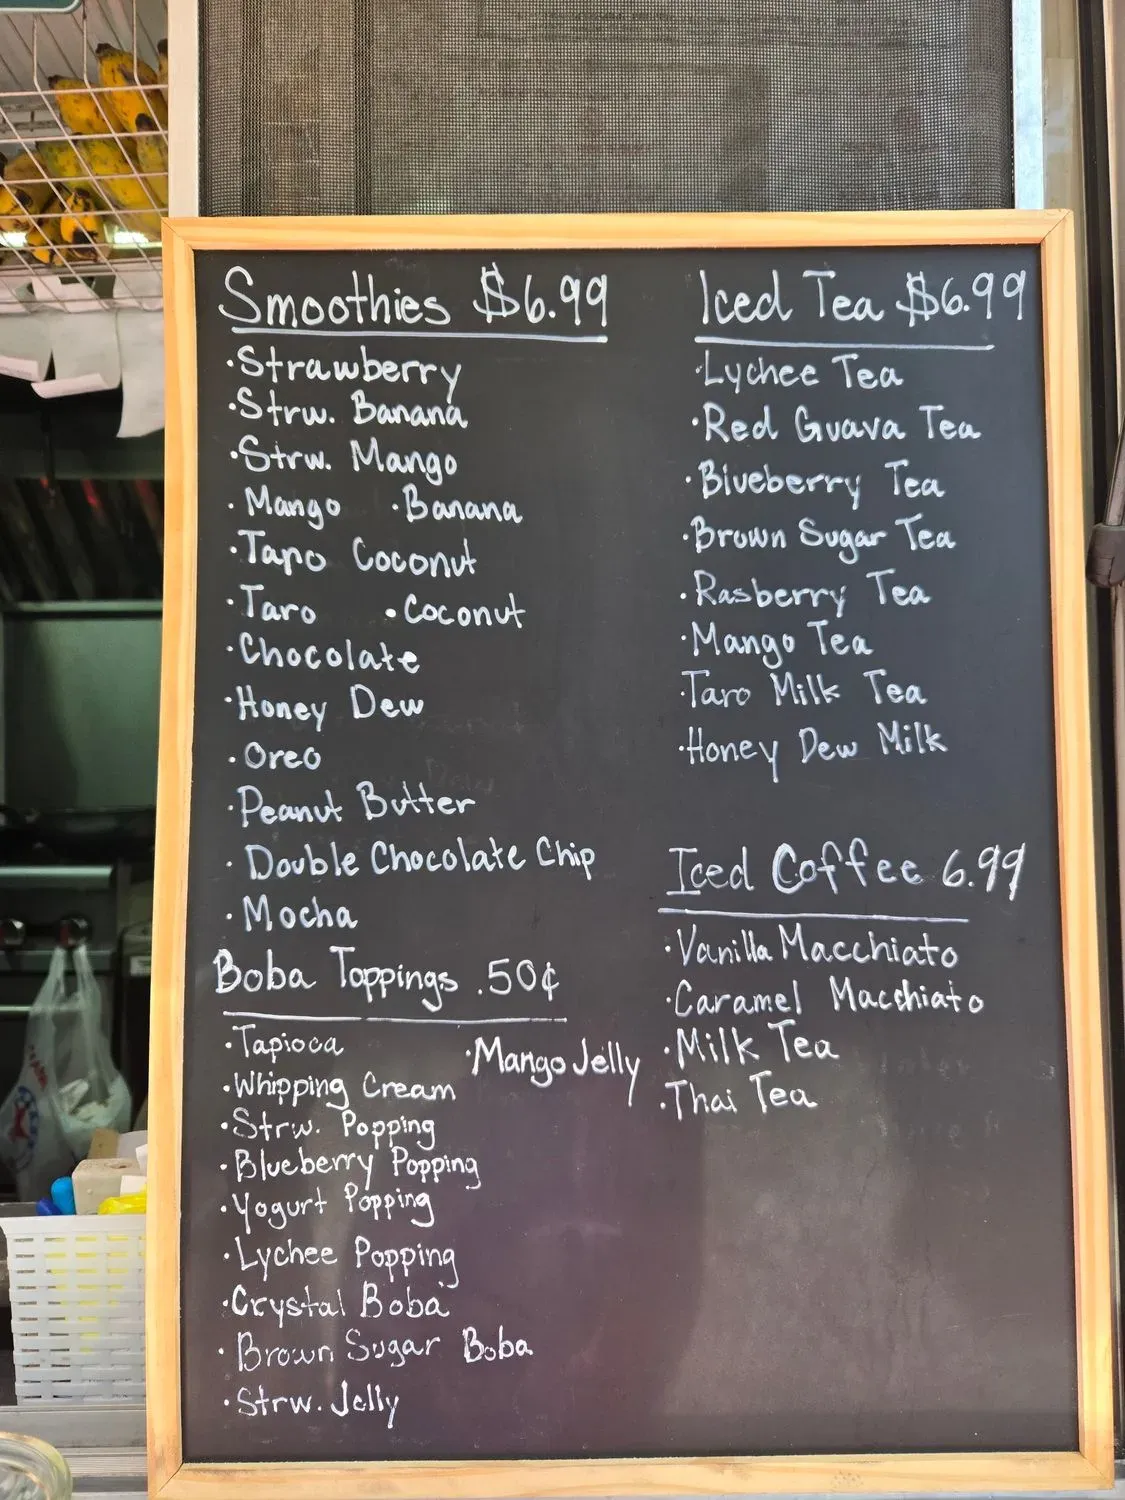 Smoothies $6.99
·Strawberry
·Strw. Banana
·Strw. Mango
·Mango ·Banana
·Taro Coconut
·Taro ·Coconut
·Chocolate
·Honey Dew
·Oreo
·Peanut Butter
·Double Chocolate Chip
·Mocha
Boba Toppings .50¢
·Tapioca ·Mango Jelly
·Whipping Cream
·Strw. Popping
·Blueberry Popping
·Yogurt Popping
·Lychee Popping
·Crystal Boba
·Brown Sugar Boba
·Strw. Jelly
Iced Tea $6.99
·Lychee Tea
·Red Guava Tea
·Blueberry Tea
·Brown Sugar Tea
·Rasberry Tea
·Mango Tea
·Taro Milk Tea
·Honey Dew Milk
Iced Coffee 6.99
·Vanilla Macchiato
·Caramel Macchiato
·Milk Tea
·Thai Tea